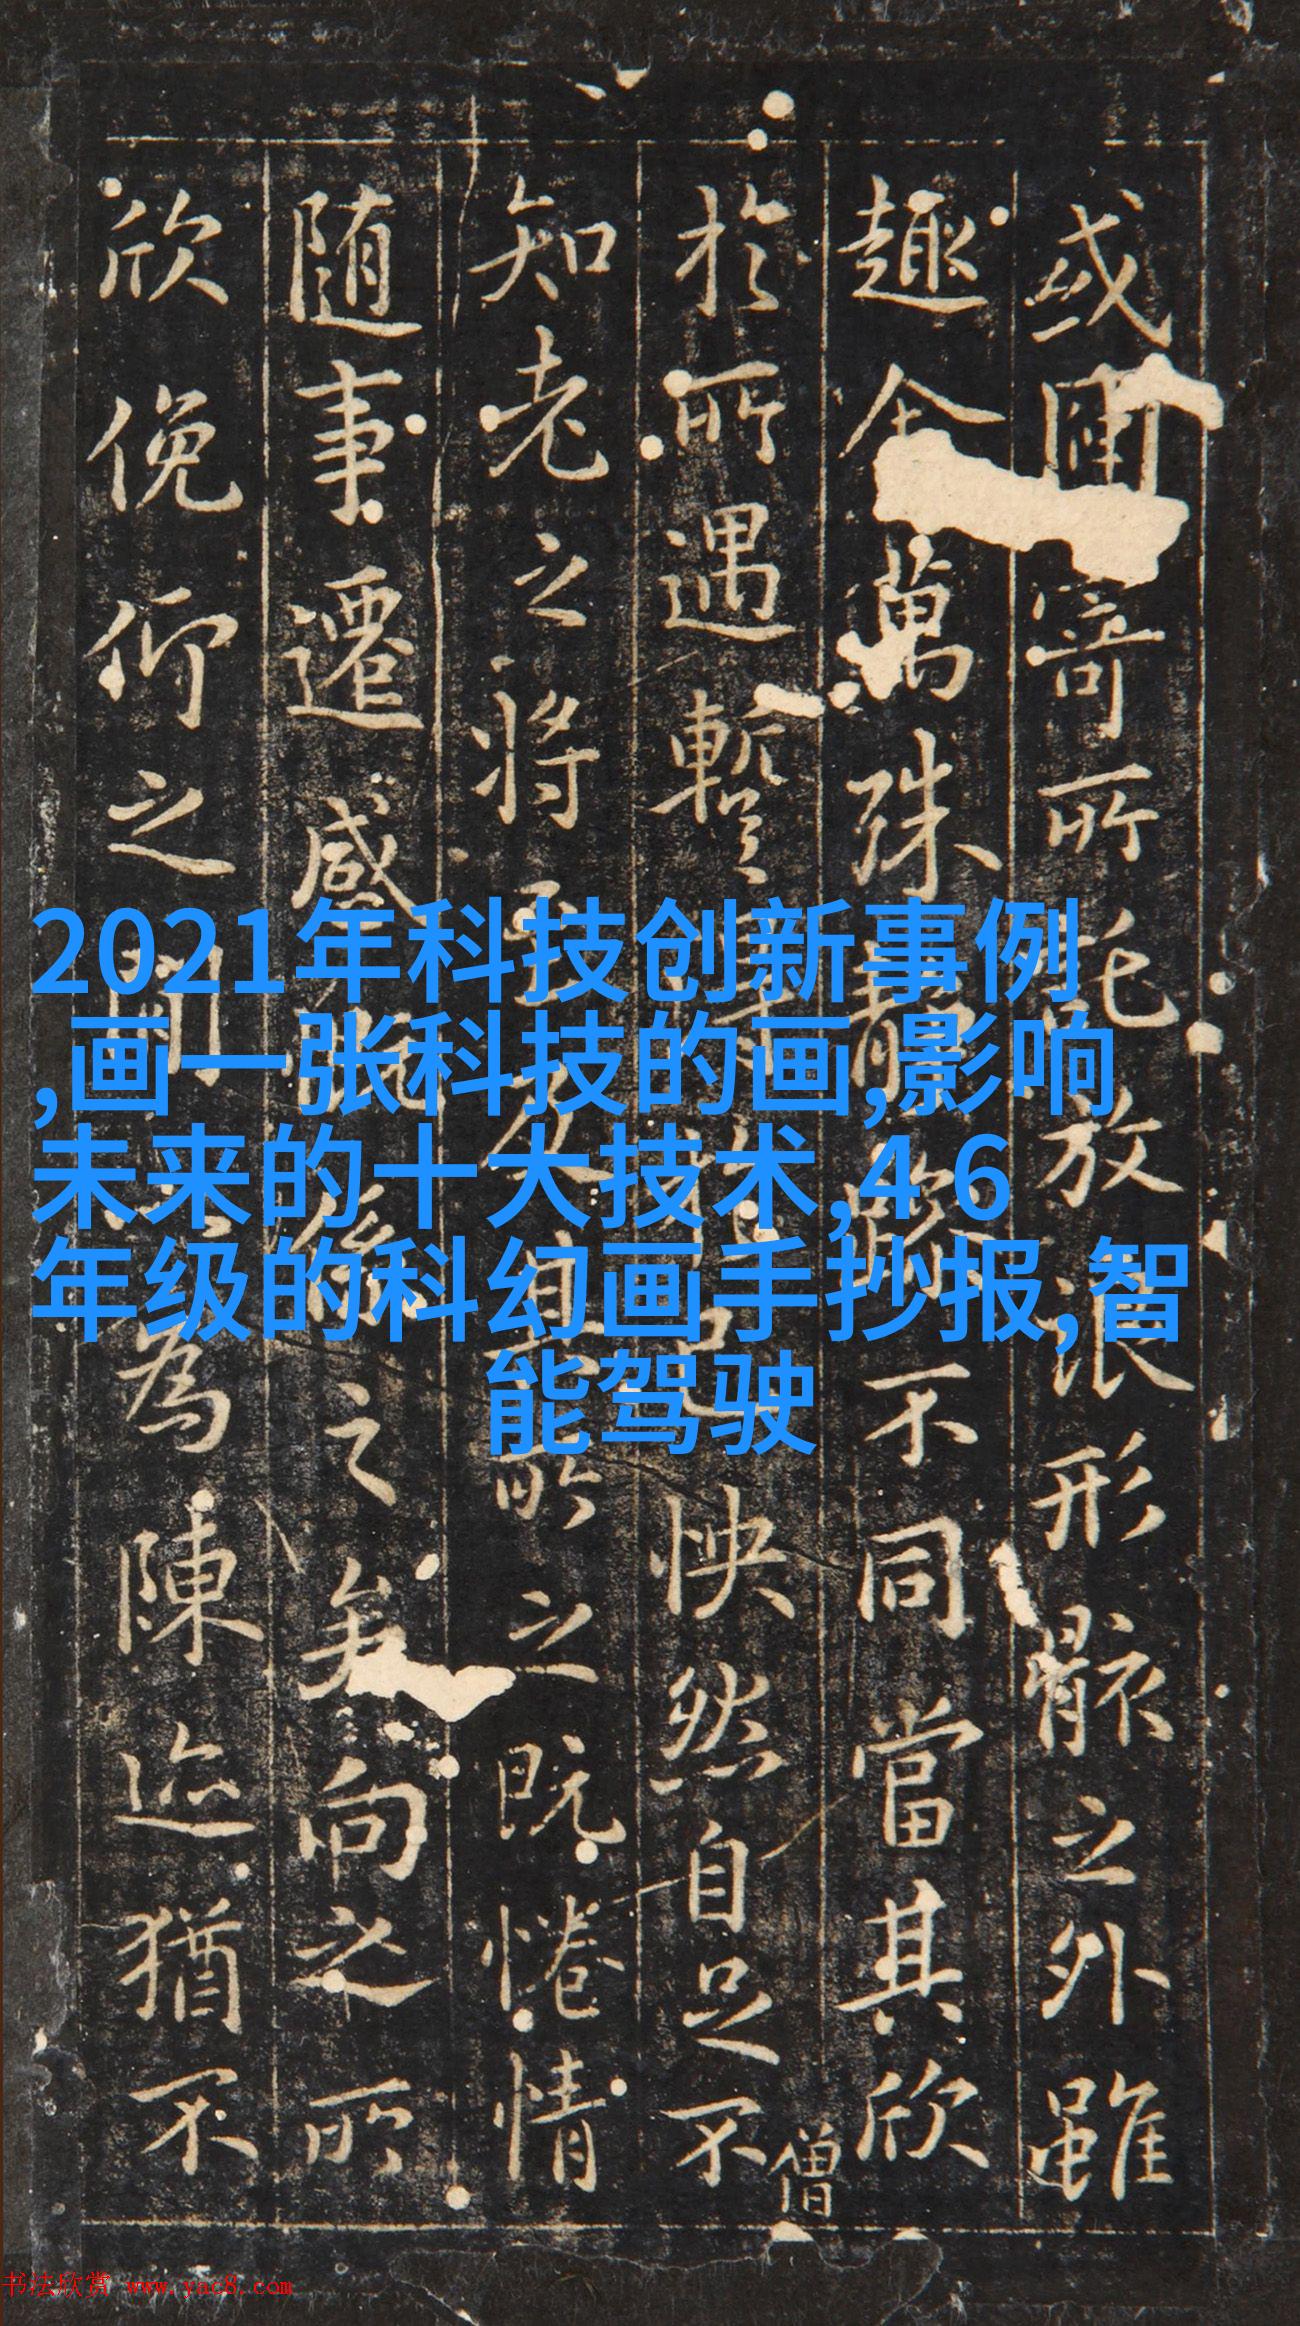 或因寄所託放浪形骸之外雖
趣舍萬殊靜躁不同當其欣
於所遇暫得於己怏然自足不
僧
知老之將至及其所之既惓情
随事遷感慨係之矣向之所
欣俛仰之間以為陳迹猶不
2021年科技创新事例
,画一张科技的画,影响
未来的十大技术,4 6
年级的科幻画手抄报,智
能驾驶
书法欣赏 www.yac8.com